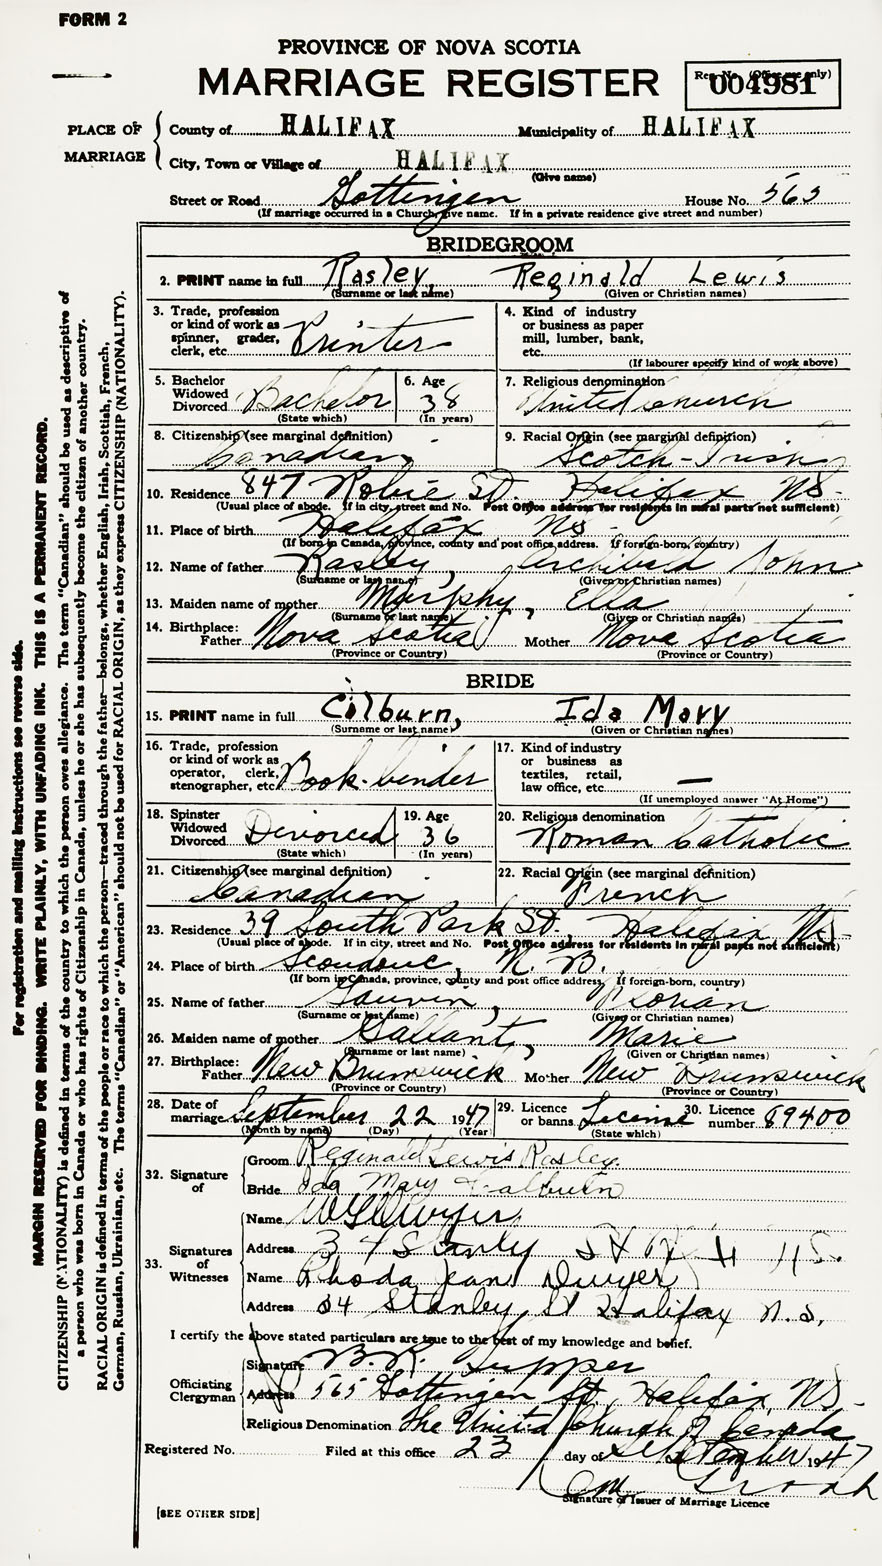 FORM 2
PROVINCE OF NOVA SCOTIA
MARRIAGE REGISTER
Reg. No. (Office use only)
004981
PLACE OF MARRIAGE
County of HALIFAX Municipality of HALIFAX
City, Town or Village of HALIFAX
(Give name)
Street or Road Gottingen House No. 565
(If marriage occurred in a Church, give name. If in a private residence give street and number)
BRIDEGROOM
2. PRINT name in full Rasley, Reginald Lewis
(Surname or last name) (Given or Christian names)
3. Trade, profession or kind of work as spinner, grader, clerk, etc. Printer
4. Kind of industry or business as paper mill, lumber, bank, etc.
(If labourer specify kind of work above)
5. Bachelor Widowed Divorced Bachelor (State which)
6. Age 38 (In years)
7. Religious denomination United Church
8. Citizenship (see marginal definition) Canadian
9. Racial Origin (see marginal definition) Scotch-Irish
10. Residence 847 Robie St. Halifax NS-
(Usual place of abode. If in city, street and No. Post Office address for residents in rural parts not sufficient)
11. Place of birth Halifax NS-
(If born in Canada, province, county and post office address. If foreign-born, country)
12. Name of father Rasley, Archibald John
(Surname or last name) (Given or Christian names)
13. Maiden name of mother Murphy, Ella
(Surname or last name) (Given or Christian names)
14. Birthplace: Father Nova Scotia Mother Nova Scotia
(Province or Country) (Province or Country)
BRIDE
15. PRINT name in full Colburn, Ida Mary
(Surname or last name) (Given or Christian names)
16. Trade, profession or kind of work as operator, clerk, stenographer, etc. Book-binder
17. Kind of industry or business as textiles, retail, law office, etc. —
(If unemployed answer "At Home")
18. Spinster Widowed Divorced Divorced (State which)
19. Age 36 (In years)
20. Religious denomination Roman Catholic
21. Citizenship (see marginal definition) Canadian
22. Racial Origin (see marginal definition) French
23. Residence 39 South Park St., Halifax NS-
(Usual place of abode. If in city, street and No. Post Office address for residents in rural parts not sufficient)
24. Place of birth Scoudouc, N. B.
(If born in Canada, province, county and post office address. If foreign-born, country)
25. Name of father Gauvin, Florian
(Surname or last name) (Given or Christian names)
26. Maiden name of mother Gallant, Marie
(Surname or last name) (Given or Christian names)
27. Birthplace: Father New Brunswick Mother New Brunswick
(Province or Country) (Province or Country)
28. Date of marriage September 22 1947
(Month by name) (Day) (Year)
29. Licence or banns License (State which)
30. Licence number 89400
32. Signature of
Groom Reginald Lewis Rasley.
Bride Ida Mary Colburn
33. Signatures of Witnesses
Name Dwyer
Address 34 Stanly St
Name Rhoda Jean Dwyer
Address 34 Stanley St Halifax N.S.
I certify the above stated particulars are true to the best of my knowledge and belief.
Officiating Clergyman
Signature B. R. Tupper
Address 565 Gottingen St, Halifax NS-
Religious Denomination The United Church of Canada
Registered No. Filed at this office 23 day of September 1947
Signature of Issuer of Marriage Licence
[SEE OTHER SIDE]
For registration and mailing instructions see reverse side.
MARGIN RESERVED FOR BINDING. WRITE PLAINLY, WITH UNFADING INK. THIS IS A PERMANENT RECORD.
CITIZENSHIP (NATIONALITY) is defined in terms of the country to which the person owes allegiance. The term "Canadian" should be used as descriptive of
a person who was born in Canada or who has rights of Citizenship in Canada, unless he or she has subsequently become the citizen of another country.
RACIAL ORIGIN is defined in terms of the people or race to which the person—traced through the father—belongs, whether English, Irish, Scottish, French,
German, Russian, Ukrainian, etc. The terms "Canadian" or "American" should not be used for RACIAL ORIGIN, as they express CITIZENSHIP (NATIONALITY).